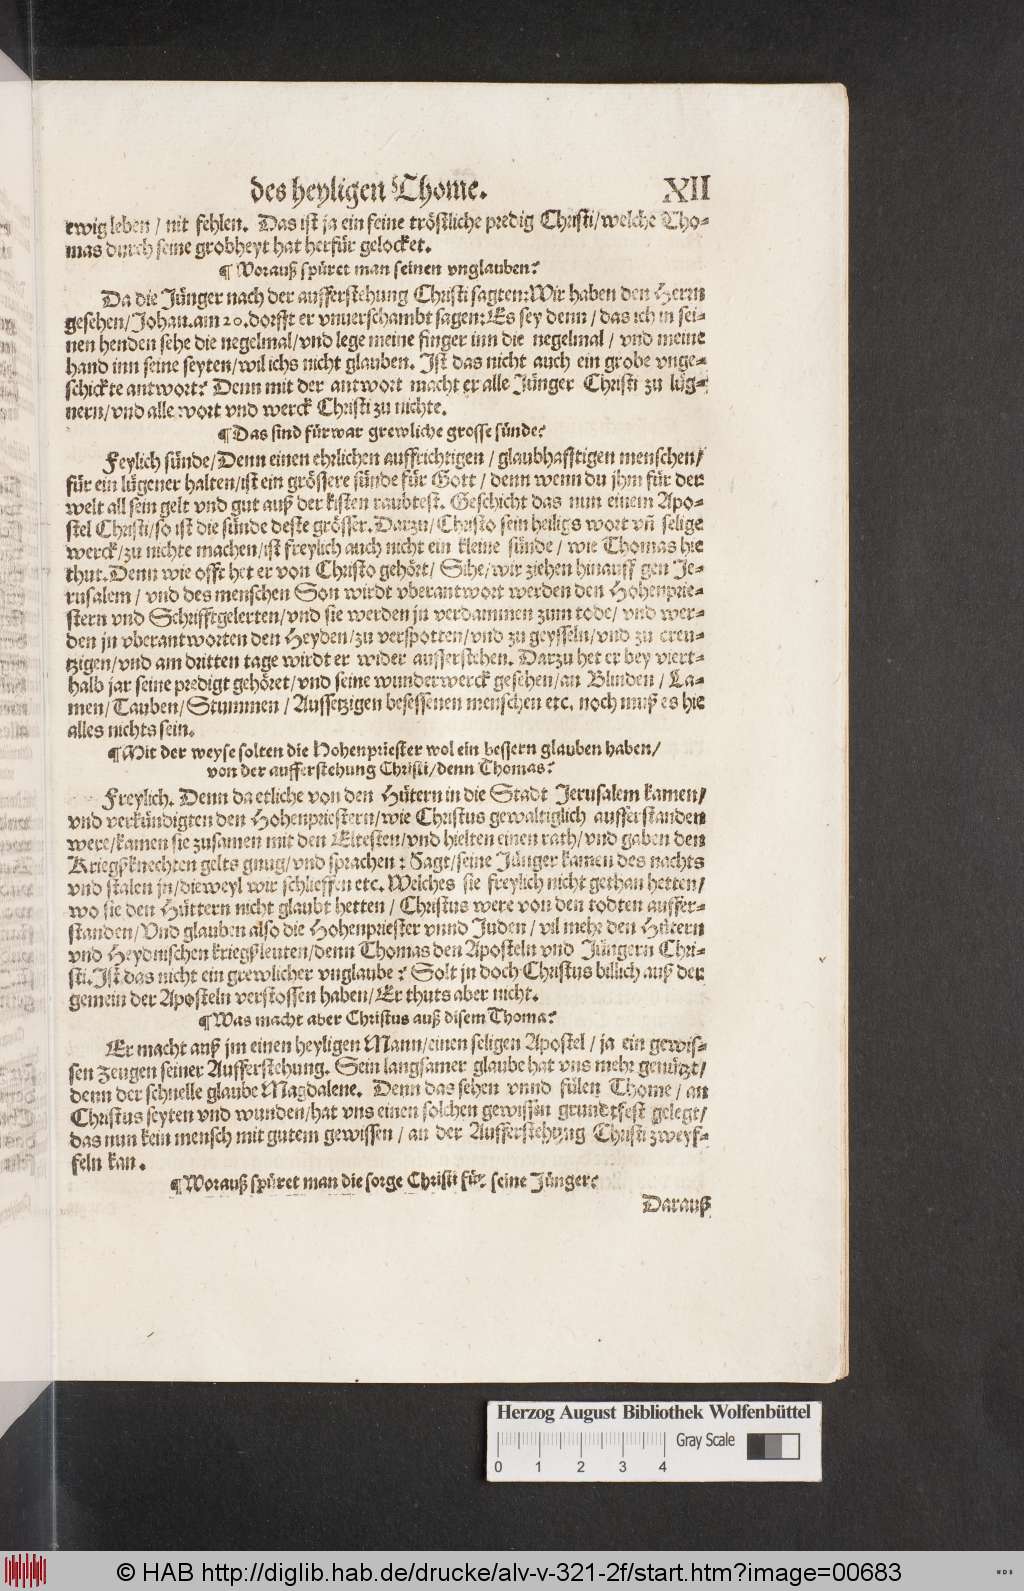 des heyligen Thome. XII
ewig leben / nit fehlen. Das ist ja ein feine tröstliche predig Christi/welche Tho=
mas durch seine grobheyt hat herfür gelocket.
¶ Worauß spüret man seinen vnglauben?
Da die Jünger nach der aufferstehung Christi sagten:Wir haben den Herrn
gesehen/Johan.am 20.dorfft er vnuerschambt sagen:Es sey denn / das ich in sei=
nen henden sehe die negelmal/vnd lege meine finger inn die negelmal / vnd meine
hand inn seine seyten/wil ichs nicht glauben. Ist das nicht auch ein grobe vnge=
schickte antwort? Denn mit der antwort macht er alle Jünger Christi zu lüg=
nern/vnd alle wort vnd werck Christi zu nichte.
¶ Das sind fürwar grewliche grosse sünde?
Feylich sünde/Denn einen ehrlichen auffrichtigen / glaubhafftigen menschen/
für ein lügener halten/ist ein grössere sünde für Gott / denn wenn du jhm für der
welt all sein gelt vnd gut auß der kisten raubtest. Geschicht das nun einem Apo=
stel Christi/so ist die sünde deste grösser.Darzu/Christo sein heiligs wort vñ selige
werck/zu nichte machen/ist freylich auch nicht ein kleine sünde / wie Thomas hie
thut.Denn wie offt het er von Christo gehört/ Sihe/wir ziehen hinauff gen Je=
rusalem / vnd des menschen Son wirdt vberantwort werden den Hohenprie=
stern vnd Schrifftgelerten/vnd sie werden jn verdammen zum tode/ vnd wer=
den jn vberantworten den Heyden/zu verspotten/vnd zu geysseln/vnd zu creu=
tzigen/vnd am dritten tage wirdt er wider aufferstehen. Darzu het er bey viert=
halb jar seine predigt gehöret/vnd seine wunderwerck gesehen/an Blinden / La=
men/Tauben/Stummen / Aussetzigen besessenen menschen etc. noch muß es hie
alles nichts sein.
¶ Mit der weyse solten die Hohenpriester wol ein bessern glauben haben/
von der aufferstehung Christi/denn Thomas?
Freylich. Denn da etliche von den Hütern in die Stadt Jerusalem kamen/
vnd verkündigten den Hohenpriestern/wie Christus gewaltiglich aufferstanden
were/kamen sie zusamen mit den Eltesten/vnd hielten einen rath/vnd gaben den
Kriegßknechten gelts gnug/vnd sprachen : Sagt/seine Jünger kamen des nachts
vnd stalen jn/dieweyl wir schlieffen etc.Welches sie freylich nicht gethan hetten/
wo sie den Hüttern nicht glaubt hetten / Christus were von den todten auffer=
standen/Vnd glauben also die Hohenpriester vnnd Juden / vil mehr den Hütern
vnd Heydnischen kriegßleuten/denn Thomas den Aposteln vnd Jüngern Chri=
sti.Ist das nicht ein grewlicher vnglaube? Solt jn doch Christus billich auß der
gemein der Aposteln verstossen haben/Er thuts aber nicht.
¶ Was macht aber Christus auß disem Thoma?
Er macht auß jm einen heyligen Mann/einen seligen Apostel / ja ein gewis=
sen zeugen seiner Aufferstehung. Sein langsamer glaube hat vns mehr genützt/
denn der schnelle glaube Magdalene. Denn das sehen vnnd fülen Thome / an
Christus seyten vnd wunden/hat vns einen solchen gewissen grundtfest gelegt/
das nun kein mensch mit gutem gewissen / an der Aufferstehung Christi zweyf=
feln kan.
¶ Worauß spüret man die sorge Christi für seine Jünger?
Darauß
Herzog August Bibliothek Wolfenbüttel
Gray Scale
0 1 2 3 4
© HAB http://diglib.hab.de/drucke/alv-v-321-2f/start.htm?image=00683